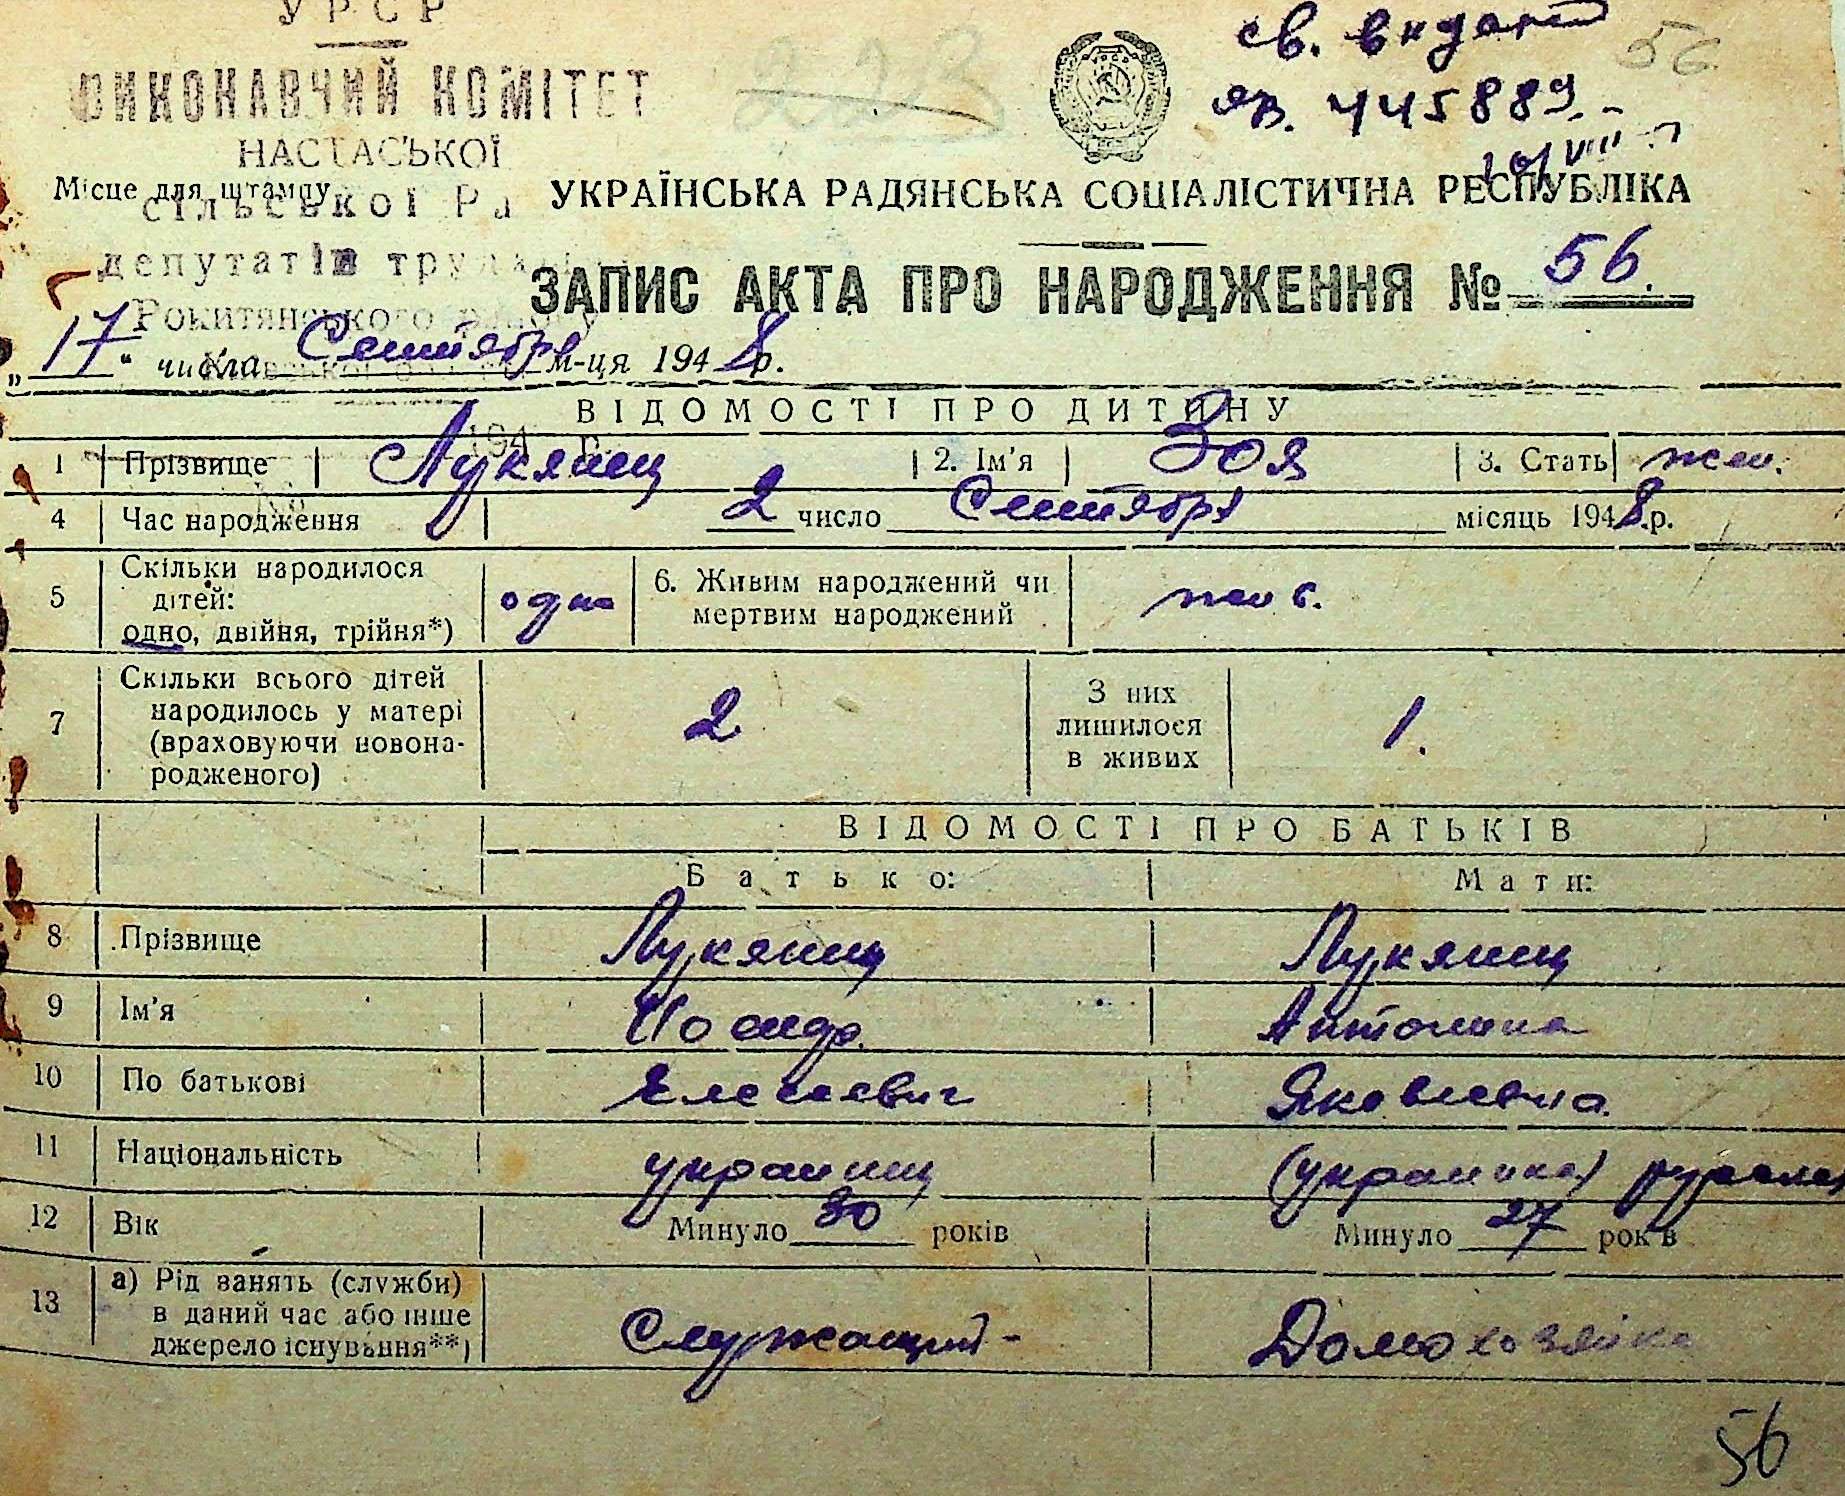 УРСР
ВИКОНАВЧИЙ КОМІТЕТ
НАСТАСЬКОЇ
сільської Ра
депутатів труда
Рокитянського району
Київської
194 р.
223
св. видані
ЯВ. 445889.-
56
Місце для штампу
УКРАЇНСЬКА РАДЯНСЬКА СОЦІАЛІСТИЧНА РЕСПУБЛІКА
ЗАПИС АКТА ПРО НАРОДЖЕННЯ № 56.
„17“ числа Сентября м-ця 1948 р.
ВІДОМОСТІ ПРО ДИТИНУ
1 Прізвище Лукянец 2. Ім'я Зоя 3. Стать жен.
4 Час народження 2 число Сентября місяць 1948 р.
5 Скільки народилося дітей: одно, двійня, трійня*) одна 6. Живим народжений чи мертвим народжений жив.
7 Скільки всього дітей народилось у матері (враховуючи новонародженого) 2 З них лишилося в живих 1.
ВІДОМОСТІ ПРО БАТЬКІВ
Батько: Мати:
8 Прізвище Лукянец Лукянец
9 Ім'я Антонина
10 По батькові Елесеевич Яковлевна
11 Національність украинец (украинка) русская
12 Вік Минуло 30 років Минуло 27 років
13 а) Рід занять (служби) в даний час або інше джерело існування**) Служащий - Домохозяйка
56